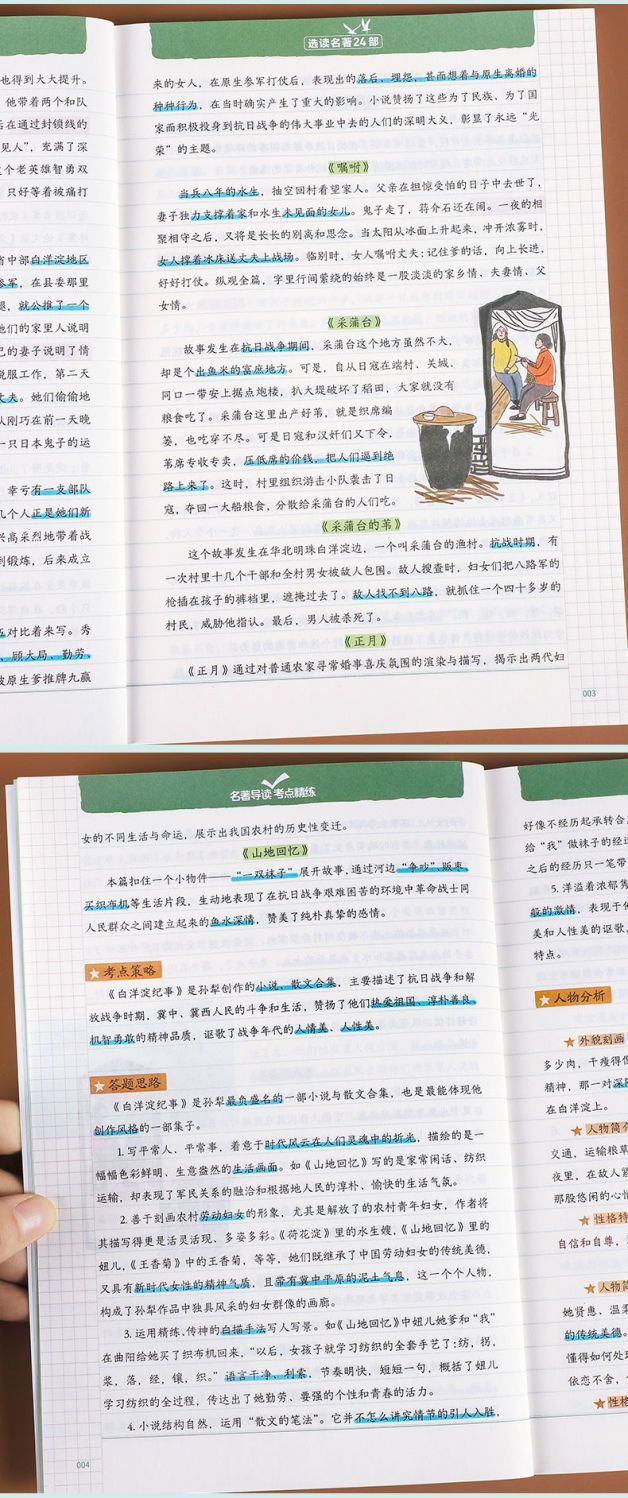 也得到大大提升。
他带着两个和队
后在通过封锁线的
见人”，充满了深
这个老英雄智勇双
只好等着被痛打
省中部白洋淀地区
参军，在县委那里
，就公推了一个
他们的家里人说明
己的妻子说明了情
说服工作，第二天
丈夫。她们偷偷地
从刚巧在前一天晚
一只日本鬼子的运
幸亏有一支部队
几个人正是她们新
兴高采烈地带着战
到锻炼，后来成立
五对比着来写。秀
、顾大局、勤劳、
被原生爹推牌九赢
选读名著24部
来的女人，在原生参军打仗后，表现出的落后、埋怨，甚而想着与原生离婚的
种种行为，在当时确实产生了重大的影响。小说赞扬了这些为了民族、为了国
家而积极投身到抗日战争的伟大事业中去的人们的深明大义，彰显了永远“光
荣”的主题。
《嘱咐》
当兵八年的水生，抽空回村看望家人。父亲在担惊受怕的日子中去世了，
妻子独力支撑着家和水生未见面的女儿。鬼子走了，蒋介石还在闹。一夜的相
聚相守之后，又将是长长的别离和思念。当太阳从冰面上升起来，冲开浓雾时，
女人撑着冰床送丈夫上战场。临别时，女人嘱咐丈夫：记住爹的话，向上长进，
好好打仗。纵观全篇，字里行间萦绕的始终是一股淡淡的家乡情、夫妻情、父
女情。
《采蒲台》
故事发生在抗日战争期间，采蒲台这个地方虽然不大，
却是个出鱼米的富庶地方。可是，自从日寇在端村、关城、
同口一带安上据点炮楼，扒大堤破坏了稻田，大家就没有
粮食吃了。采蒲台这里出产好苇，就是织席编
篓，也吃穿不尽。可是日寇和汉奸们又下令，
苇席专收专卖，压低席的价钱，把人们逼到绝
路上来了。这时，村里组织游击小队袭击了日
寇，夺回一大船粮食，分散给采蒲台的人们吃。
《采蒲台的苇》
这个故事发生在华北明珠白洋淀边，一个叫采蒲台的渔村。抗战时期，有
一次村里十几个干部和全村男女被敌人包围。敌人搜查时，妇女们把八路军的
枪插在孩子的裤裆里，遮掩过去了。敌人找不到八路，就抓住一个四十多岁的
村民，威胁他指认。最后，男人被杀死了。
《正月》
《正月》通过对普通农家寻常婚事喜庆氛围的渲染与描写，揭示出两代妇
003
名著导读 考点精练
女的不同生活与命运，展示出我国农村的历史性变迁。
《山地回忆》
本篇扣住一个小物件——“一双袜子”展开故事，通过河边“争吵”、贩枣、
买织布机等生活片段，生动地表现了在抗日战争艰难困苦的环境中革命战士同
人民群众之间建立起来的鱼水深情，赞美了纯朴真挚的感情。
考点策略
《白洋淀纪事》是孙犁创作的小说、散文合集，主要描述了抗日战争和解
放战争时期，冀中、冀西人民的斗争和生活，赞扬了他们热爱祖国、淳朴善良、
机智勇敢的精神品质，讴歌了战争年代的人情美、人性美。
答题思路
《白洋淀纪事》是孙犁最负盛名的一部小说与散文合集，也是最能体现他
创作风格的一部集子。
1.写平常人、平常事，着意于时代风云在人们灵魂中的折光，描绘的是一
幅幅色彩鲜明、生意盎然的生活画面。如《山地回忆》写的是家常闲话、纺织
运输，却表现了军民关系的融洽和根据地人民的淳朴、愉快的生活气氛。
2.善于刻画农村劳动妇女的形象，尤其是解放了的农村青年妇女，作者将
其描写得更是活灵活现、多姿多彩。《荷花淀》里的水生嫂，《山地回忆》里的
妞儿，《王香菊》中的王香菊，等等，她们既继承了中国劳动妇女的传统美德，
又具有新时代女性的精神气质，且带有冀中平原的泥土气息，这一个个人物，
构成了孙犁作品中独具风采的妇女群像的画廊。
3.运用精练、传神的白描手法写人写景。如《山地回忆》中妞儿她爹和“我”
在曲阳给她买了织布机回来，“以后，女孩子就学习纺织的全套手艺了：纺，拐，
浆，落，经，镶，织。”语言干净、利索，节奏明快，短短一句，概括了妞儿
学习纺织的全过程，传达出了她勤劳、要强的个性和青春的活力。
4.小说结构自然，运用“散文的笔法”。它并不怎么讲究情节的引人入胜，
004
好像不经历起承转合，
给“我”做袜子的经过
之后的经历只一笔带
5.洋溢着浓郁
般的激情，表现于
美和人性美的讴歌，
特点。
人物分析
外貌刻画
多少肉，干瘦得像
精神，那一对深陷
在白洋淀上。
人物简介
交通，运输粮草
夜里，在敌人紧
那股悠闲的心情
性格特
自信和自尊，
人物简
她贤惠、温柔
的传统美德。
懂得如何处理
依恋不舍，
性格